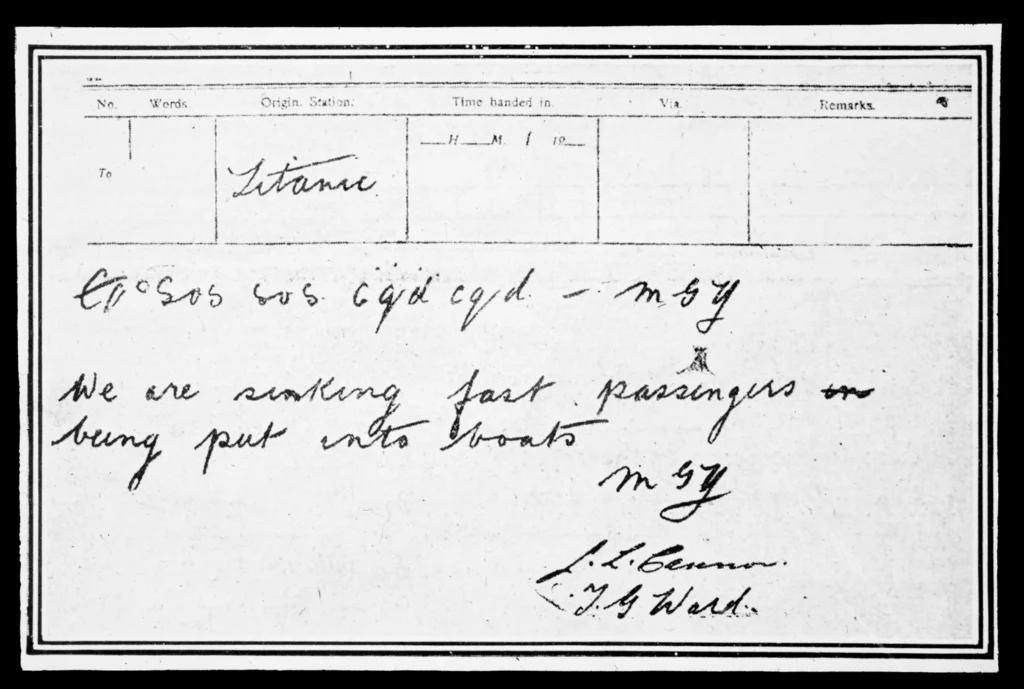 No. Words. Origin. Station. Time handed in. Via. Remarks.
H. M. 19
To Titanic
SOS SOS cqd cqd - MGY
We are sinking fast passengers
being put into boats
MGY
T. G Ward.